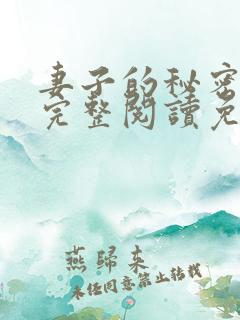 妻子的秘密
完整閱讀免
燕歸来
未经同意禁止转载